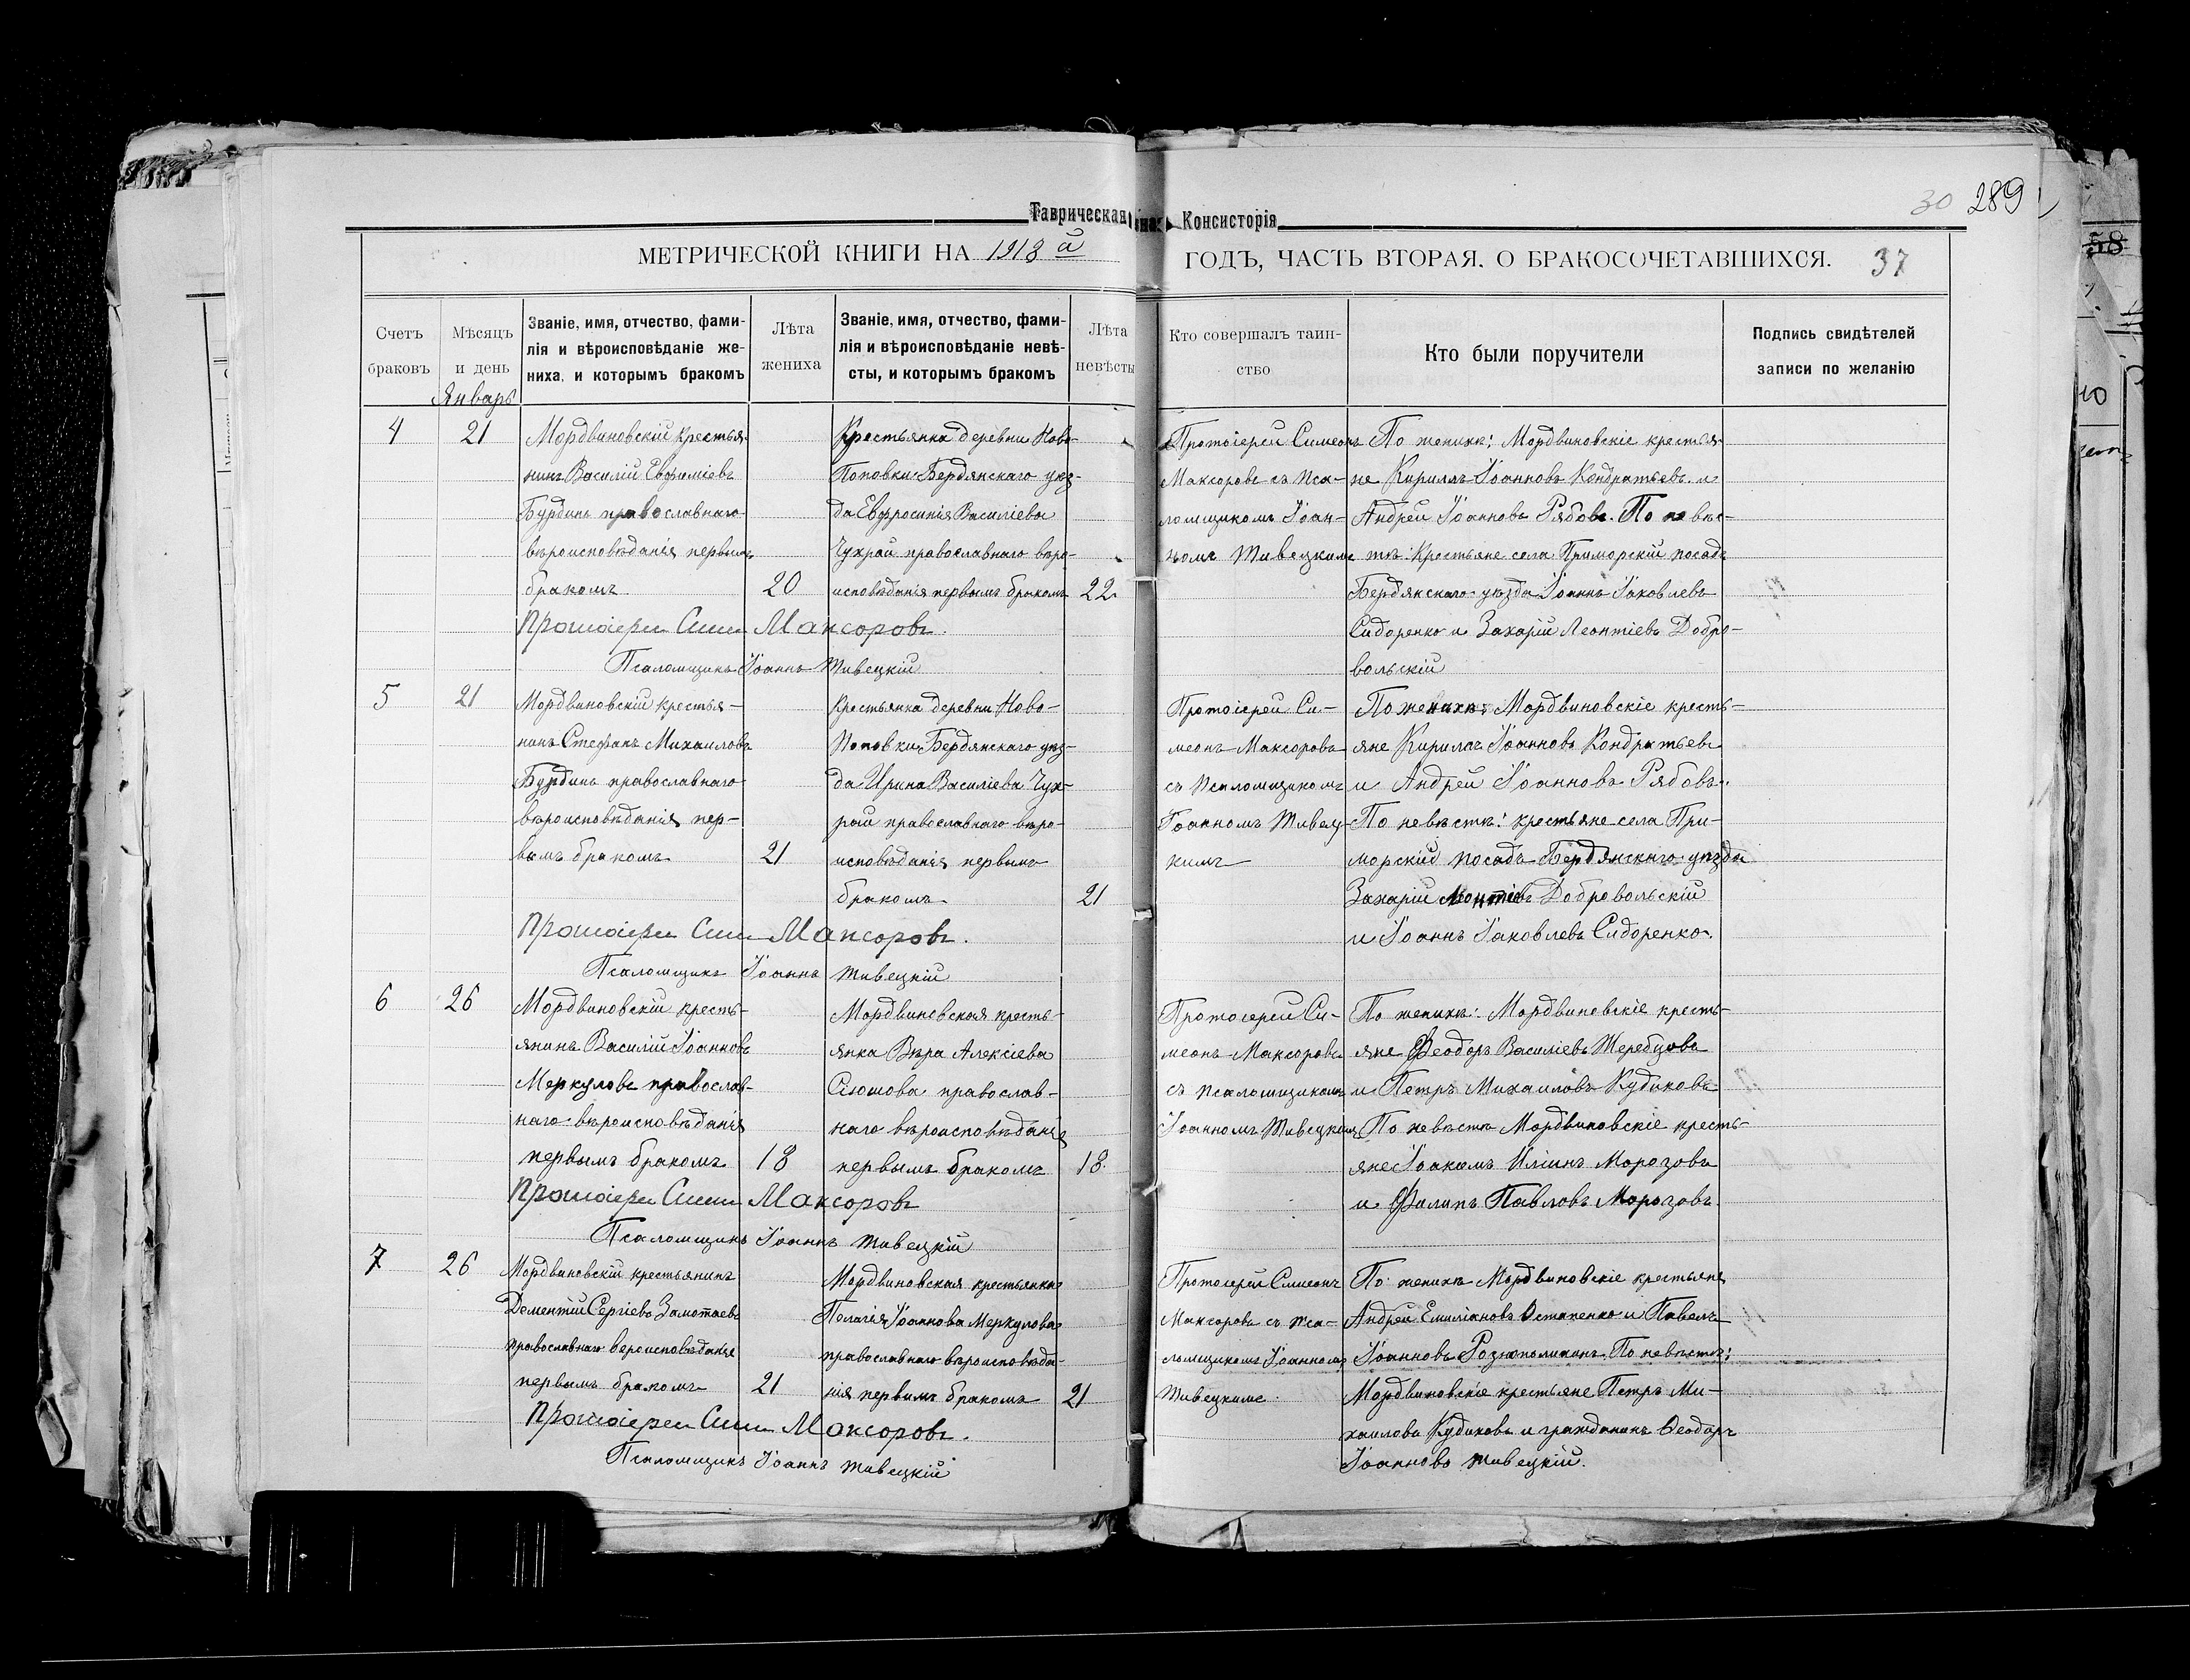 Таврическая Консисторія
30 289
МЕТРИЧЕСКОЙ КНИГИ НА 1918 й ГОДЪ, ЧАСТЬ ВТОРАЯ, О БРАКОСОЧЕТАВШИХСЯ. 37
Счетъ браковъ
Мѣсяцъ и день
Званіе, имя, отчество, фами-
лія и вѣроисповѣданіе же-
ниха, и которымъ бракомъ
Лѣта жениха
Званіе, имя, отчество, фами-
лія и вѣроисповѣданіе невѣ-
сты, и которымъ бракомъ
Лѣта невѣсты
Кто совершалъ таин-
ство
Кто были поручители
Подпись свидѣтелей
записи по желанію
Январь
4
21
Мордвиновскій крестья-
нинъ Василій Евфиміевъ
Бурдинъ православнаго
вѣроисповѣданія первымъ
бракомъ
20
Крестьянка деревни Ново-
Поповки Бердянскаго уѣз-
да Евфросинія Василіева
Чухрай православнаго вѣро-
исповѣданія первымъ бракомъ
22
Протоіерей Симеонъ
Максоровъ съ Пса-
ломщикомъ Іоан-
номъ Живецкимъ
По женихѣ: Мордвиновскіе крестья-
не Кириллъ Іоанновъ Кондратьевъ и
Андрей Іоанновъ Рябовъ. По невѣс-
тѣ: Крестьяне села Приморскій посадъ
Бердянскаго уѣзда Іоаннъ Іаковлевъ
Сидоренко и Захарій Леонтіевъ Добро-
вольскій
Протоіерей Симеонъ Максоровъ.
Псаломщикъ Іоаннъ Живецкій
5
21
Мордвиновскій крестья-
нинъ Стефанъ Михаиловъ
Бурдинъ православнаго
вѣроисповѣданія пер-
вымъ бракомъ
21
Крестьянка деревни Ново-
Поповки, Бердянскаго уѣз-
да Ирина Василіева Чух-
рай православнаго вѣро-
исповѣданія первымъ
бракомъ
21
Протоіерей Си-
меонъ Максоровъ
съ Псаломщикомъ
Іоанномъ Живец-
кимъ
По женихѣ: Мордвиновскіе кресть-
яне Кириллъ Іоанновъ Кондратьевъ
и Андрей Іоанновъ Рябовъ.
По невѣстѣ: крестьяне села При-
морскій посадъ Бердянскаго уѣзда
Захарій Леонтіевъ Добровольскій
и Іоаннъ Іаковлевъ Сидоренко.
Протоіерей Симеонъ Максоровъ.
Псаломщикъ Іоаннъ Живецкій
6
26
Мордвиновскій кресть-
янинъ Василій Іоанновъ
Меркуловъ православ-
наго вѣроисповѣданія
первымъ бракомъ
18
Мордвиновская кресть-
янка Вѣра Алексіева
Сіюшова православ-
наго вѣроисповѣданія
первымъ бракомъ
18
Протоіерей Си-
меонъ Максоровъ
съ псаломщикомъ
Іоанномъ Живецкимъ
По женихѣ: Мордвиновскіе кресть-
яне Феодоръ Василіевъ Жеребцовъ
и Петръ Михаиловъ Кудиковъ
По невѣстѣ Мордвиновскіе кресть-
яне Іоакимъ Иліинъ Морозовъ
и Филипъ Павловъ Морозовъ.
Протоіерей Симеонъ Максоровъ
Псаломщикъ Іоаннъ Живецкій
7
26
Мордвиновскій крестьянинъ
Дементій Сергіевъ Замотаевъ
православнаго вероисповѣданія
первымъ бракомъ
21
Мордвиновская крестьянка
Пелагія Іоаннова Меркулова
православнаго вѣроисповѣда-
нія первымъ бракомъ
21
Протоіерей Симеонъ
Максоровъ съ пса-
ломщикомъ Іоанномъ
Живецкимъ.
По женихѣ Мордвиновскіе крестьяне
Андрей Емиліановъ Остапенко и Павелъ
Іоанновъ По невѣстѣ:
Мордвиновскіе крестьяне Петръ Ми-
хаиловъ Кудиковъ и гражданинъ Ѳеодоръ
Іоанновъ Живецкій.
Протоіерей Симеонъ Максоровъ.
Псаломщикъ Іоаннъ Живецкій
58